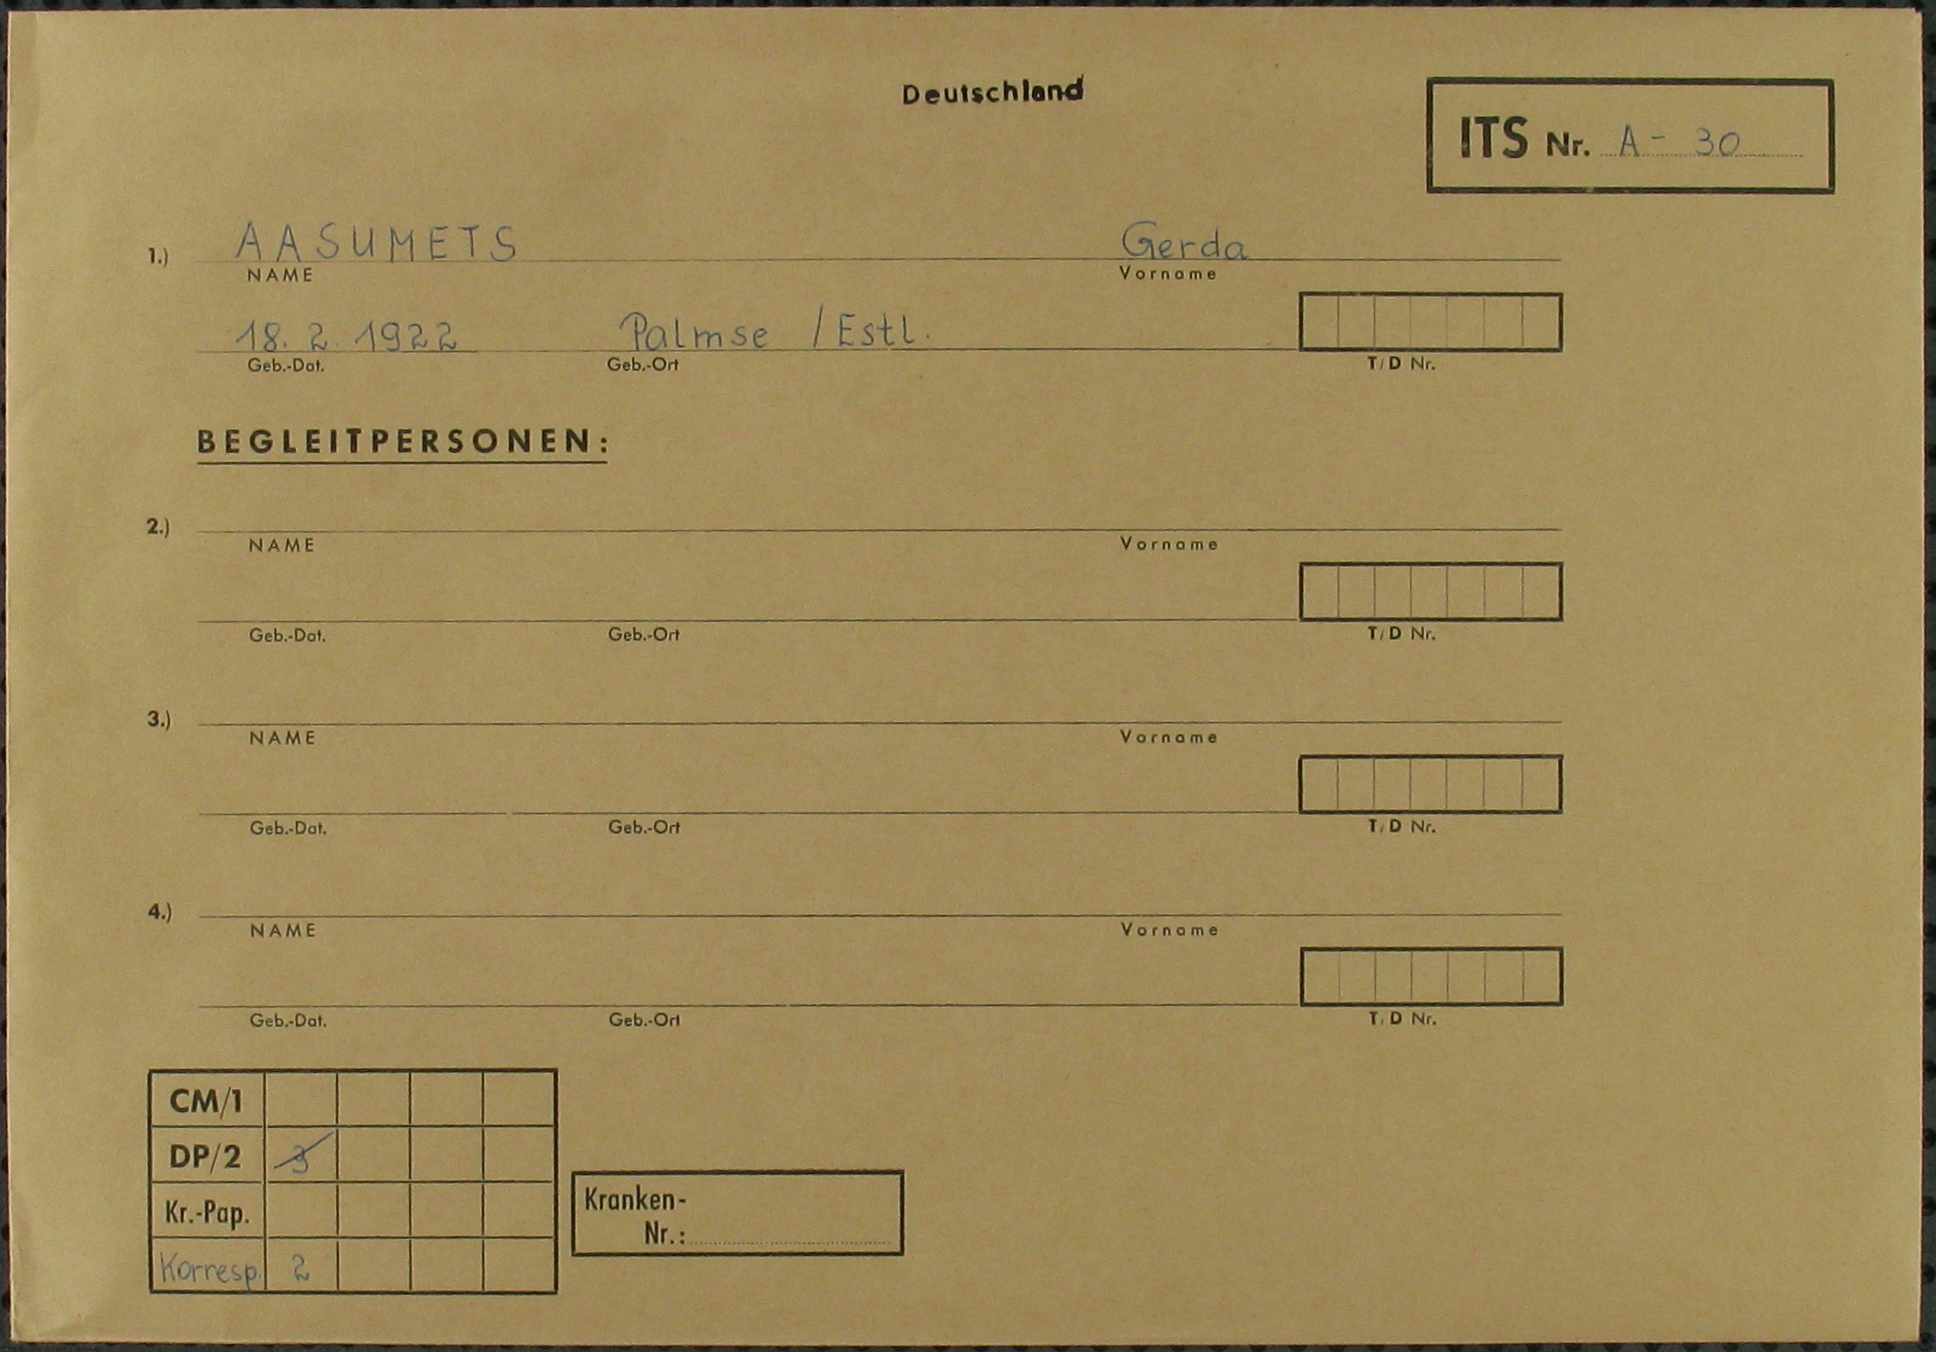 Deutschland
ITS Nr. A- 30
1.) AASUMETS Gerda
NAME Vorname
18. 2. 1922 Palmse / Estl.
Geb.-Dat. Geb.-Ort T/D Nr.
BEGLEITPERSONEN:
2.)
NAME Vorname
Geb.-Dat. Geb.-Ort T/D Nr.
3.)
NAME Vorname
Geb.-Dat. Geb.-Ort T/D Nr.
4.)
NAME Vorname
Geb.-Dat. Geb.-Ort T/D Nr.
CM/1
DP/2 3
Kr.-Pap.
Korresp. 2
Kranken-
Nr.: